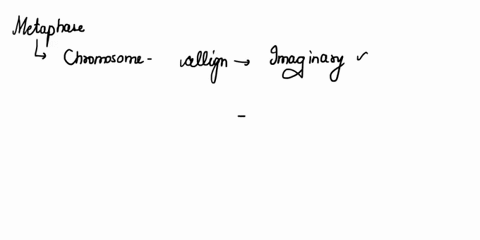 Metaphase
↳ Chromosome - allign → Imaginary ✓
-